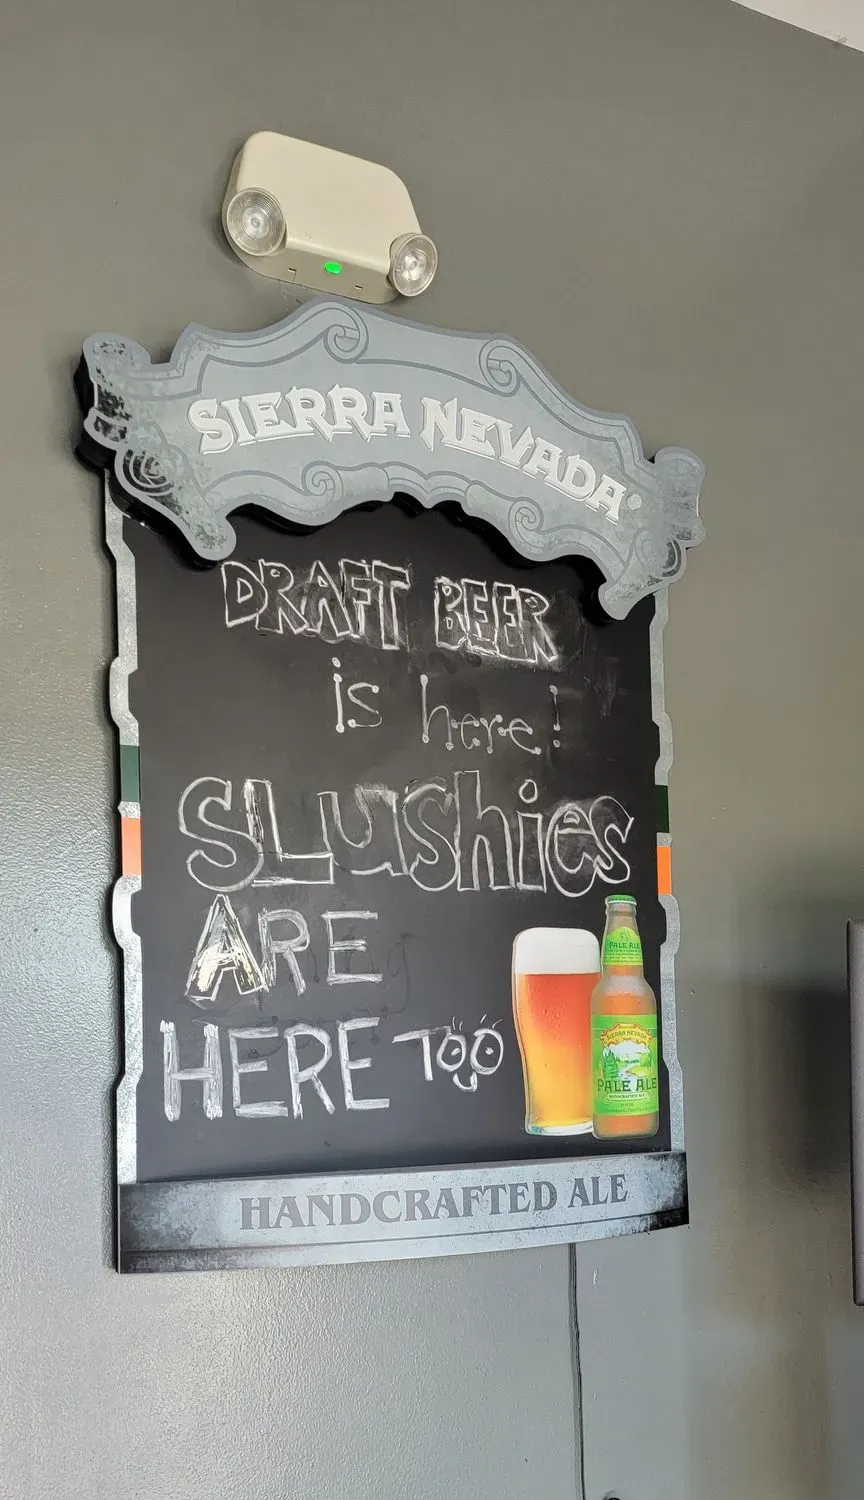 SIERRA NEVADA®
DRAFT BEER
is here!
SLushies
ARE
HERE TOO
PALE ALE
SIERRA NEVADA
PALE ALE
HANDCRAFTED ALE
HANDCRAFTED ALE